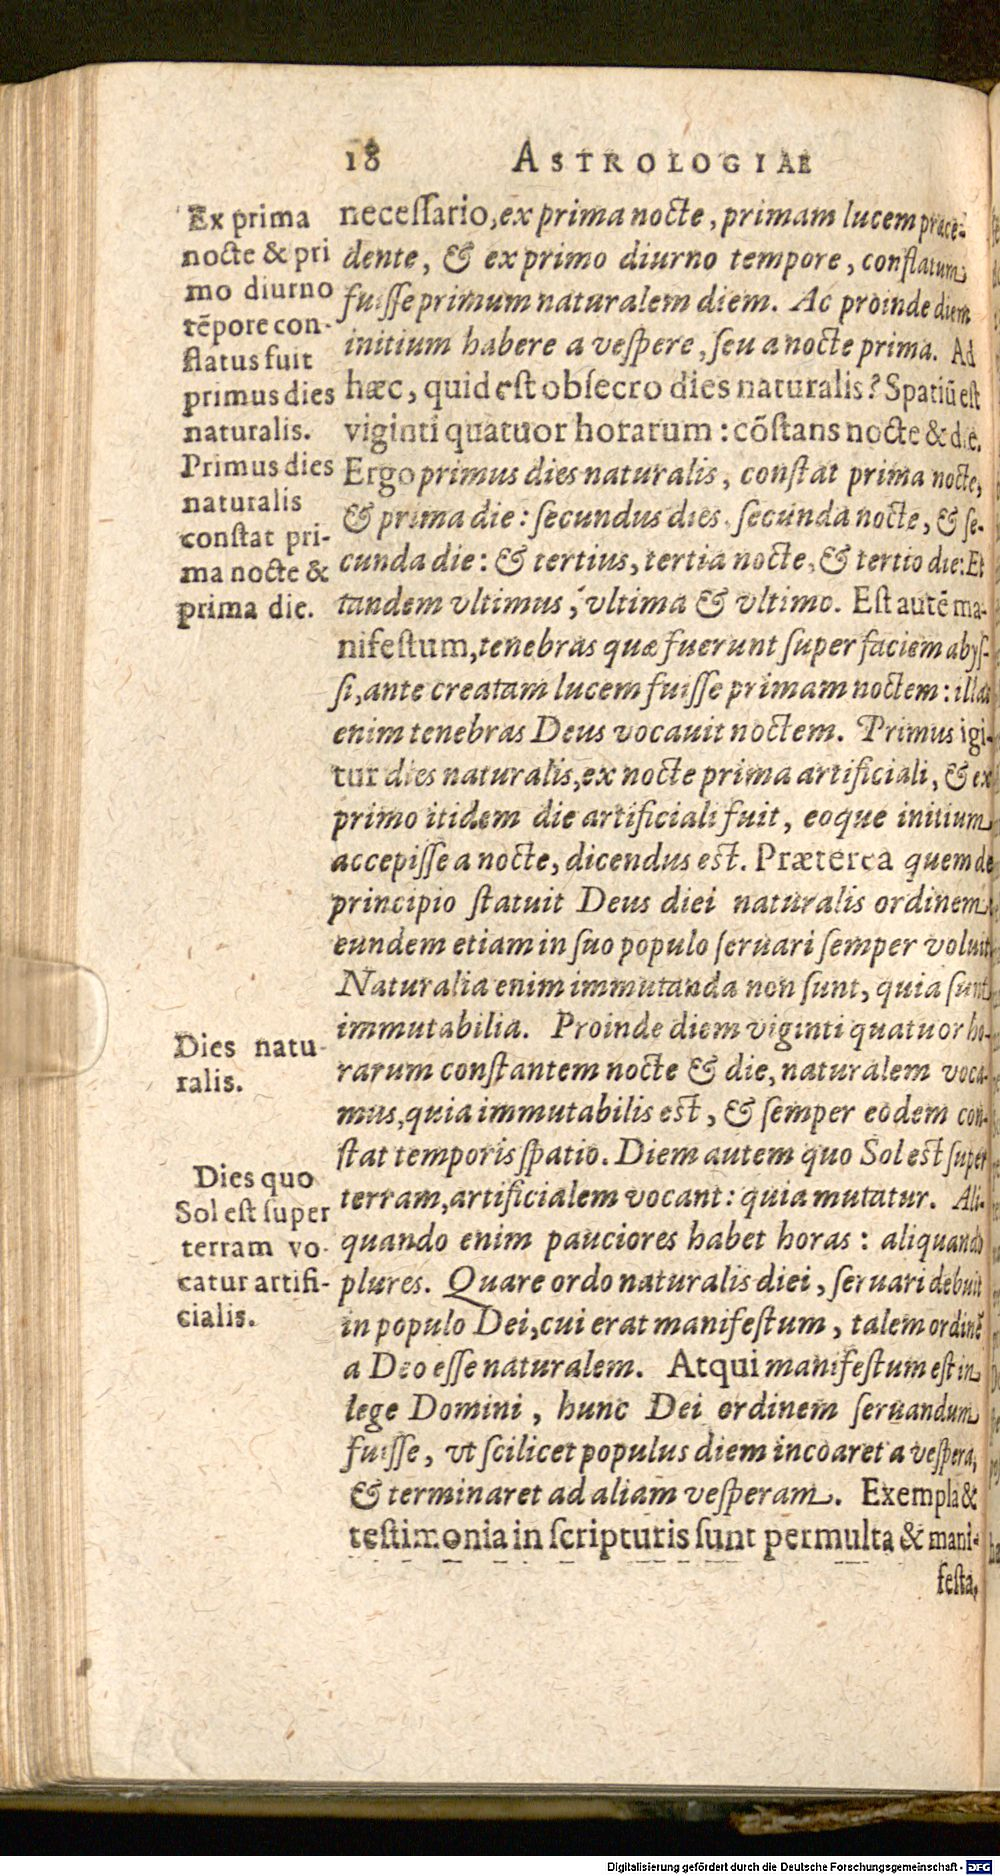 18 ASTROLOGIAE
Ex prima
nocte & pri
mo diurno
tẽpore con-
ſtatus fuit
primus dies
naturalis.
Primus dies
naturalis
conſtat pri-
ma nocte &
prima die.
Dies natu-
ralis.
Dies quo
Sol eſt ſuper
terram vo-
catur artifi-
cialis.
neceſſario, ex prima nocte, primam lucem præce-
dente, & ex primo diurno tempore, conflatum
fuiſſe primum naturalem diem. Ac proinde diem
initium habere a veſpere, ſeu a nocte prima. Ad
hæc, quid eſt obſecro dies naturalis? Spatiũ eſt
viginti quatuor horarum: cõſtans nocte & die.
Ergo primus dies naturalis, conſtat prima nocte,
& prima die: ſecundus dies, ſecunda nocte, & ſe-
cunda die: & tertius, tertia nocte, & tertio die: Et
tandem vltimus, vltima & vltimo. Eſt autẽ ma-
nifeſtum, tenebras quæ fuerunt ſuper faciem abyſ-
ſi, ante creatam lucem fuiſſe primam noctem: illas
enim tenebras Deus vocauit noctem. Primus igi-
tur dies naturalis, ex nocte prima artificiali, & ex
primo itidem die artificiali fuit, eoque initium
accepiſſe a nocte, dicendus eſt. Præterea quem de
principio ſtatuit Deus diei naturalis ordinem
eundem etiam in ſuo populo ſeruari ſemper voluit
Naturalia enim immutanda non ſunt, quia ſunt
immutabilia. Proinde diem viginti quatuor ho-
rarum conſtantem nocte & die, naturalem voca-
mus, quia immutabilis eſt, & ſemper eodem con-
ſtat temporis ſpatio. Diem autem quo Sol eſt ſuper
terram, artificialem vocant: quia mutatur. Ali-
quando enim pauciores habet horas: aliquando
plures. Quare ordo naturalis diei, ſeruari debuit
in populo Dei, cui erat manifeſtum, talem ordinẽ
a Deo eſſe naturalem. Atqui manifeſtum eſt in
lege Domini, hunc Dei ordinem ſeruandum
fuiſſe, vt ſcilicet populus diem incoaret a veſpera,
& terminaret ad aliam veſperam. Exempla &
teſtimonia in ſcripturis ſunt permulta & mani-
feſta,
Digitalisierung gefördert durch die Deutsche Forschungsgemeinschaft - DFG